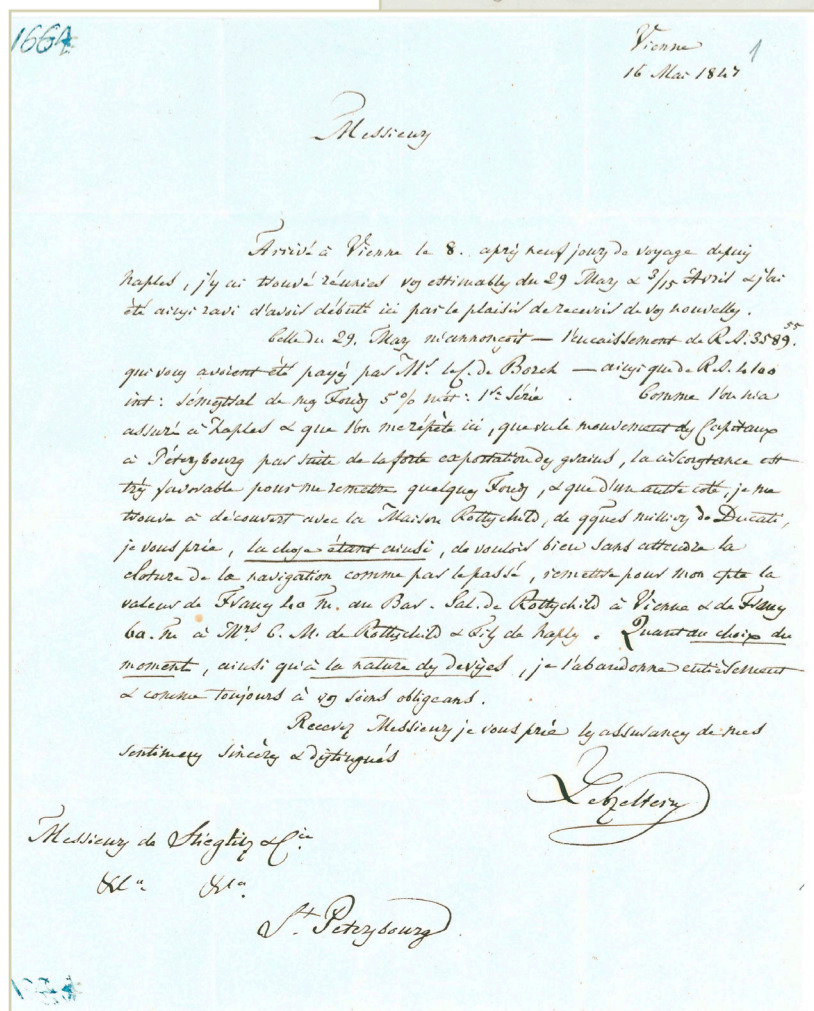 1664
Vienne 1
16 Mai 1847
Messieurs
Arrivé à Vienne le 8. après neuf jours de voyage depuis
Naples, j'y ai trouvé réunies vos estimables du 29 Mars & 3/15 Avril & j'ai
été ainsi ravi d'avoir débuté ici par le plaisir de recevoir de vos nouvelles.
Celle du 29. Mars m'annonçoit — l'encaissement de R.A: 3589.55
qui vous avoient été payés par Mr. le C. de Borch — ainsi que de R.A.
int: sémestral de mes Fonds 5% 1re Série . Comme l'on m'a
assuré à Naples & que l'on me répète ici, que vu le mouvement des Capitaux
à Pétersbourg par suite de la forte exportation des grains, la circonstance est
très favorable pour me remettre quelques Fonds, & que d'un autre coté, je me
trouve à découvert avec la Maison Rothschild, de qques milliers de Ducati,
je vous prie, la chose étant ainsi, de vouloir bien sans attendre la
cloture de la navigation comme par le passé, remettre pour mon cpte la
valeur de Francs 40 m. au Bar. Sal. de Rothschild à Vienne & de Francs
60. m à Mrs C. M. de Rothschild & Fils de Naples. Quant au choix du
moment, ainsi qu'à la nature des devises, je l'abandonne entièrement
& comme toujours à vos soins obligeans.
Recevez Messieurs je vous prie les assurances de mes
sentimens sincères & distingués
Lebzeltern
Messieurs de Stieglitz & Cie.
&La &La.
St. Petersbourg